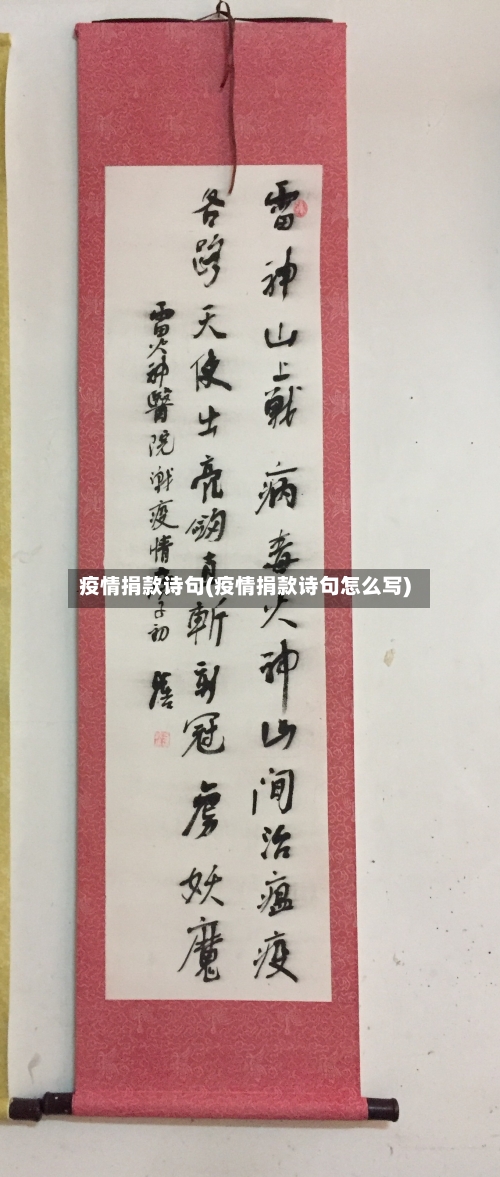 雷神山上戰病毒火神山间治瘟疫
各路天使出亮剑 斬新冠虏妖魔
雷火神醫院戰疫情 子初
疫情捐款诗句(疫情捐款诗句怎么写)